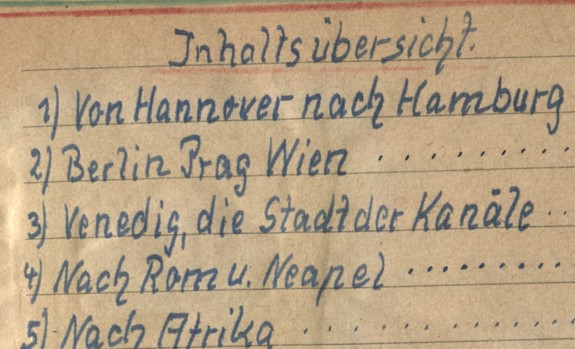 Inhaltsübersicht.
1) Von Hannover nach Hamburg
2) Berlin Prag Wien . . . . . . . . .
3) Venedig, die Stadt der Kanäle . .
4) Nach Rom u. Neapel . . . . . . . . .
5) Nach Afrika . . . . . . . . . . . .